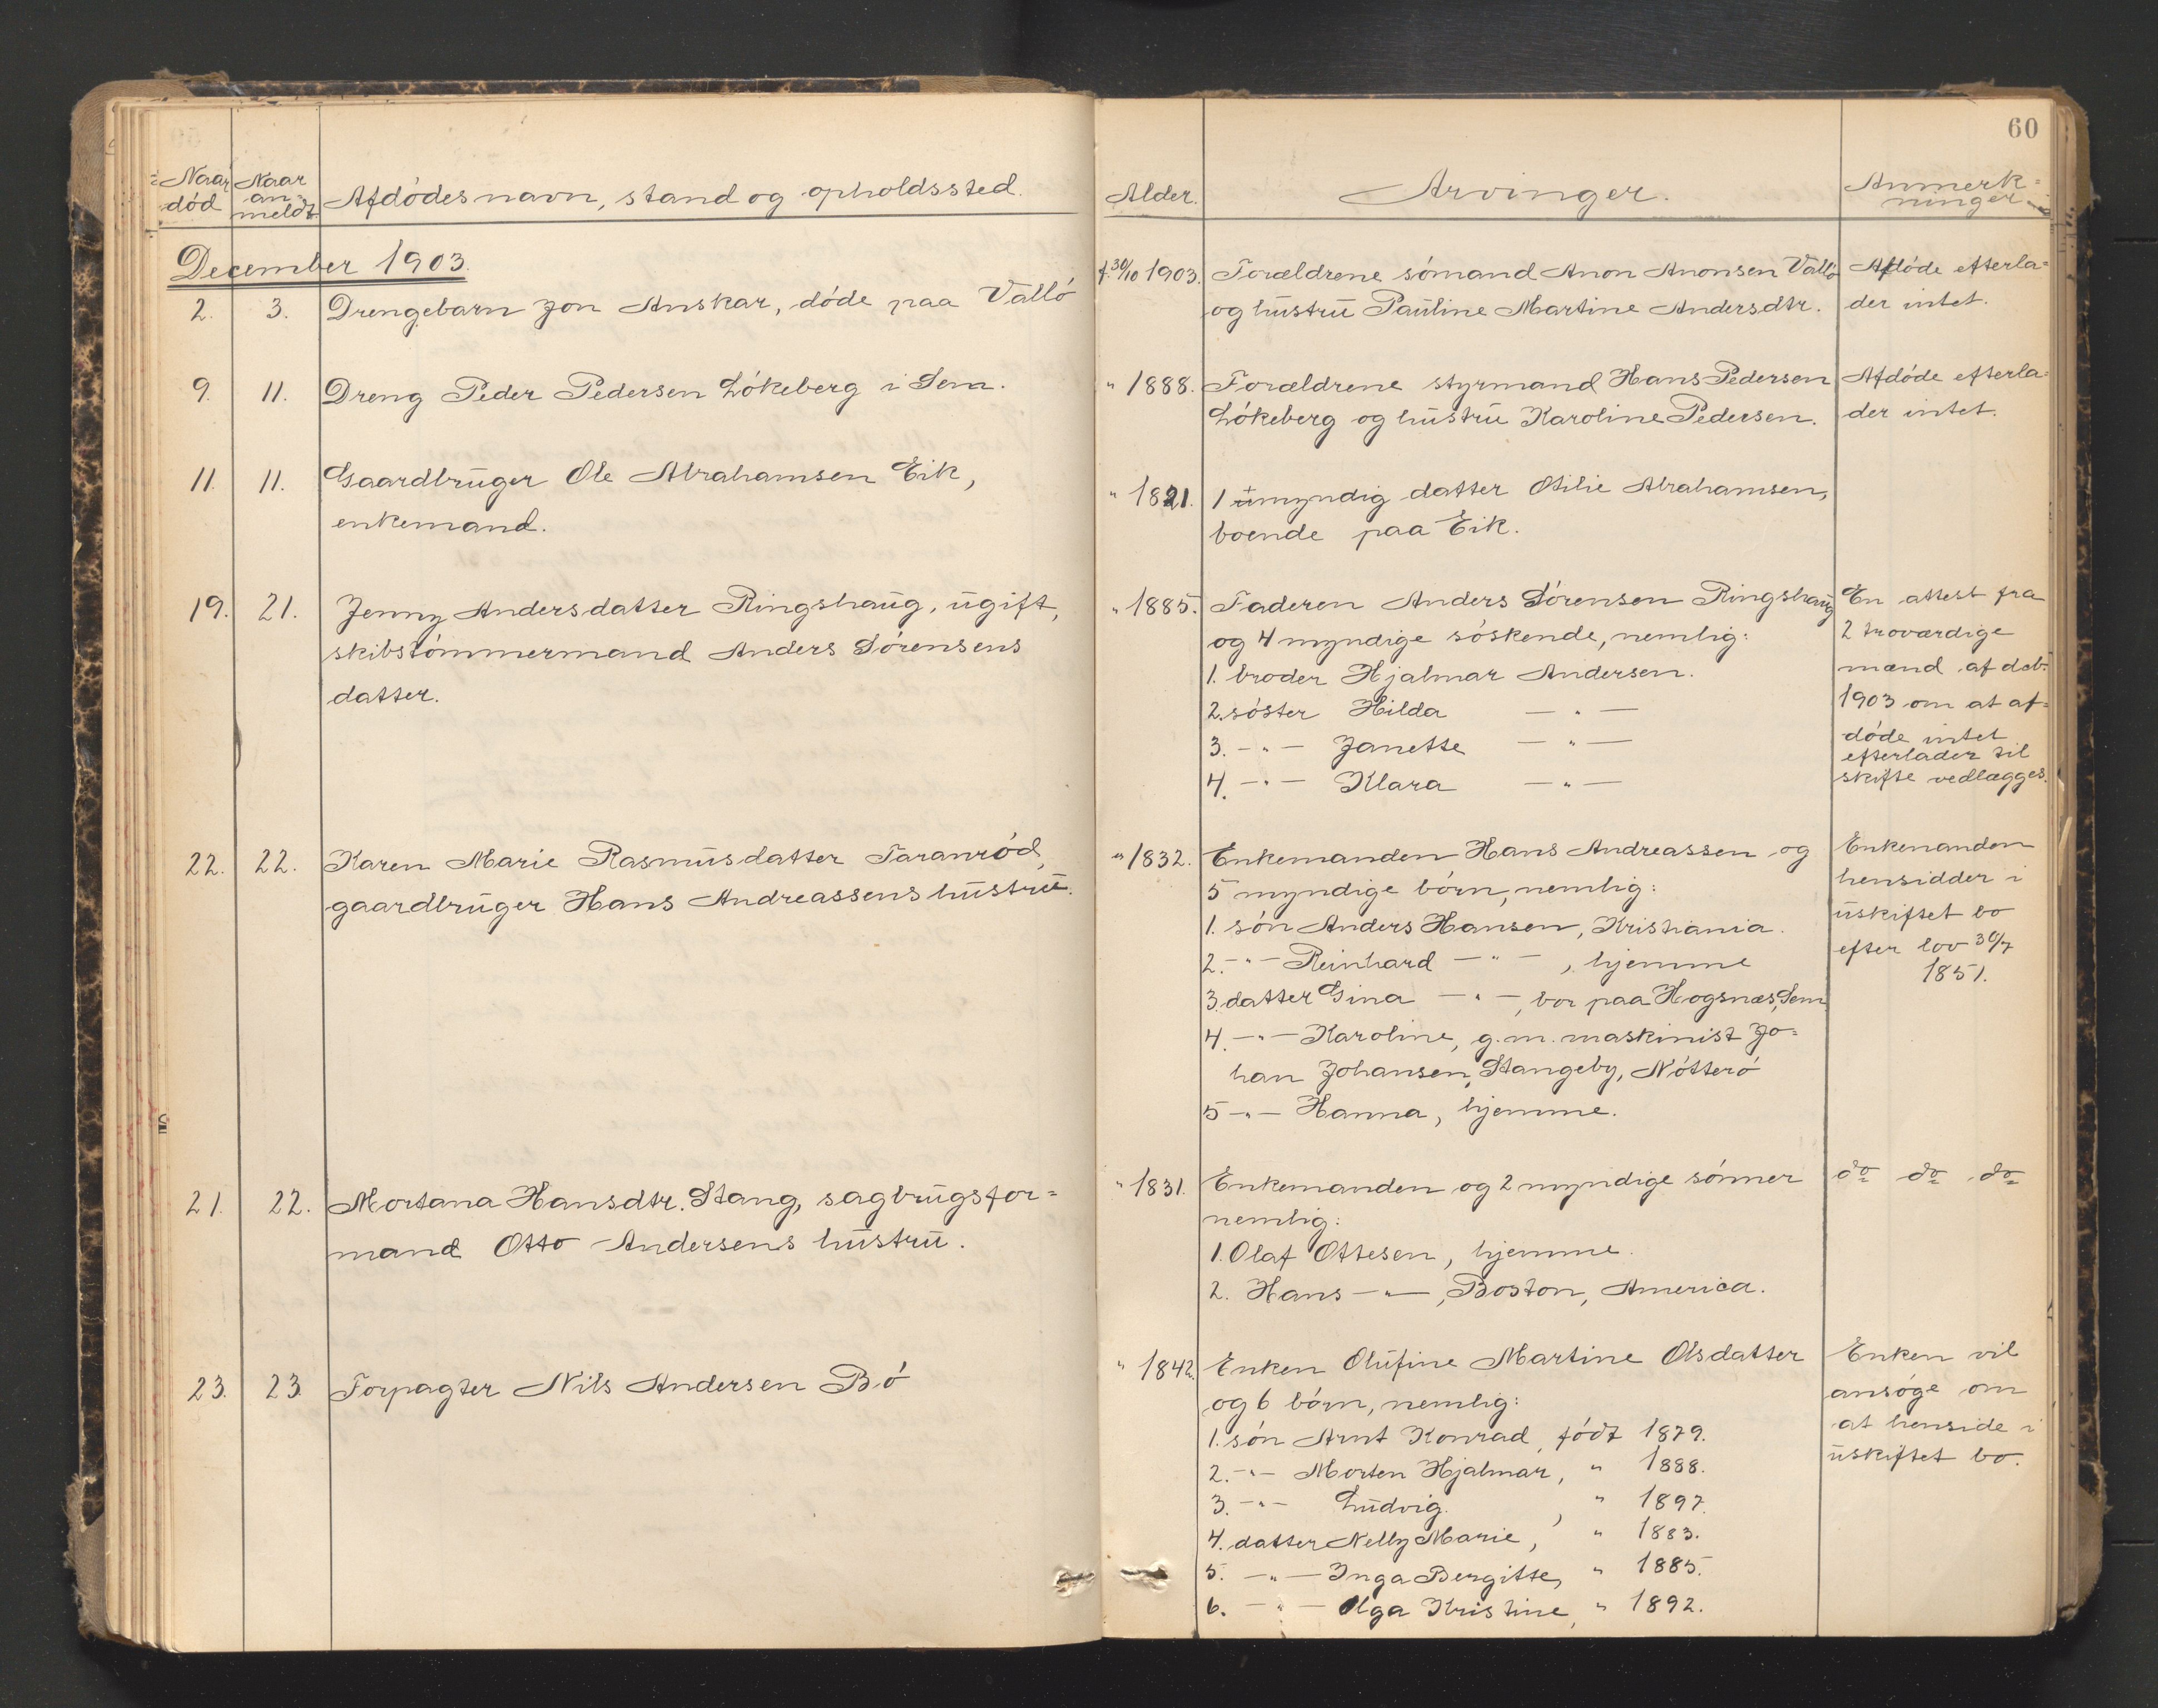 60
Naar død
Naar an-meldt
Afdødes navn, stand og opholdssted.
Alder.
Arvinger.
Anmerk-ninger.
December 1903.
2. 3. Drengebarn Jon Anskar, døde paa Vallø
f. 30/10 1903. Forældrene sømand Anon Anonsen Vallø
og hustru Pauline Martine Andersdtr.
Afdøde efterla-
der intet.
9. 11. Dreng Peder Pedersen Løkeberg i Sem.
" 1888. Forældrene styrmand Hans Pedersen
Løkeberg og hustru Karoline Pedersen.
Afdøde efterla-
der intet.
11. 11. Gaardbruger Ole Abrahamsen Eik,
enkemand.
" 1821. 1 umyndig datter Otilie Abrahamsen,
boende paa Eik.
19. 21. Jenny Andersdatter Ringshaug, ugift,
skibstømmermand Anders Sørensens
datter.
" 1885. Faderen Anders Sørensen Ringshaug
og 4 myndige søskende, nemlig:
1. broder Hjalmar Andersen.
2. søster Hilda — " —
3. - " - Janette — " —
4. - " - Klara — " —
En attest fra
2 troværdige
mænd af dcb.
1903 om at af-
døde intet
efterlader til
skifte vedlægges.
22. 22. Karen Marie Rasmusdatter Taranrød,
gaardbruger Hans Andreassens hustru.
" 1832. Enkemanden Hans Andreassen og
5 myndige børn, nemlig:
1. søn Anders Hansen, Kristiania.
2. - " - Reinhard - " - , hjemme
3. datter Gina - " - , bor paa Hogsnæs, Sem.
4. - " - Karoline, g.m. maskinist Jo-
han Johansen, Stangeby, Nøtterø
5 - " - Hanna, hjemme.
Enkemanden
hensidder i
uskiftet bo
efter lov 30/7
1851.
21. 22. Mortana Hansdtr. Stang, sagbrugsfor-
mand Otto Andersens hustru.
" 1831. Enkemanden og 2 myndige sønner
nemlig:
1. Olaf Ottesen, hjemme.
2. Hans - " - , Boston, America.
do do do
23. 23. Forpagter Nils Andersen Bø
" 1842. Enken Olufine Martine Olsdatter
og 6 børn, nemlig:
1. søn Arnt Konrad, født 1879.
2. - " - Morten Hjalmar, " 1888.
3. - " - Ludvig, " 1897.
4. datter Nelly Marie, " 1883.
5. - " - Inga Bergitte, " 1885.
6. - " - Olga Kristine, " 1892.
Enken vil
ansøge om
at henside i
uskiftet bo.